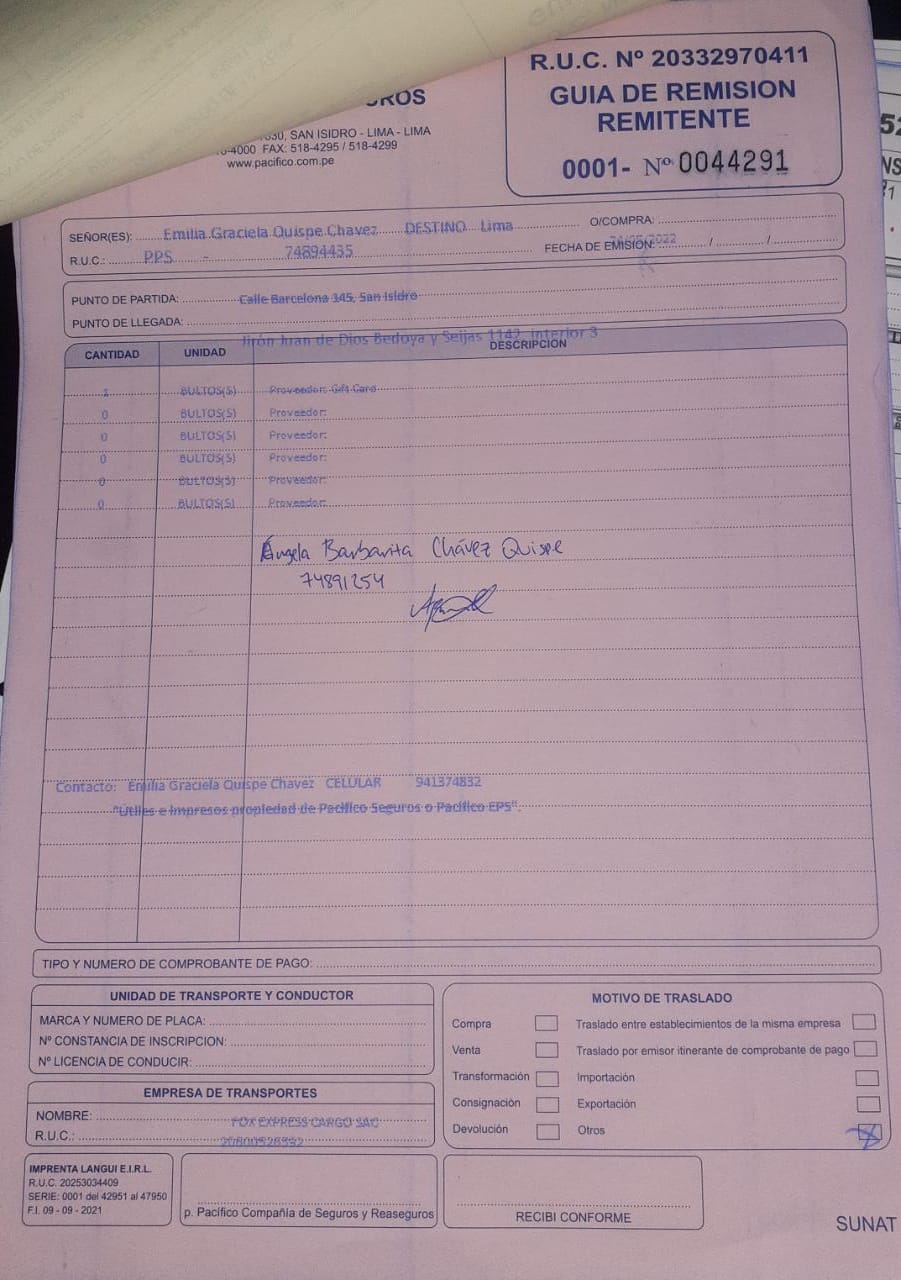 R.U.C. Nº 20332970411
GUIA DE REMISION
REMITENTE
0001- Nº 0044291
SAN ISIDRO - LIMA - LIMA
-4000 FAX: 518-4295 / 518-4299
www.pacifico.com.pe
SEÑOR(ES): Emilia Graciela Quispe Chavez DESTINO Lima O/COMPRA:
R.U.C.: PPS - 74894435 FECHA DE EMISIÓN: / /
PUNTO DE PARTIDA: Calle Barcelona 145, San Isidro
PUNTO DE LLEGADA:
Jirón Juan de Dios Bedoya y Seijas 1142, interior 3
CANTIDAD UNIDAD DESCRIPCION
1 BULTOS(S) Proveedor: Gift Card
0 BULTOS(S) Proveedor:
0 BULTOS(S) Proveedor:
0 BULTOS(S) Proveedor:
0 BULTOS(S) Proveedor:
0 BULTOS(S) Proveedor:
Ángela Barbarita Chávez Quispe
74891254
Contacto: Emilia Graciela Quispe Chavez CELULAR 941374832
"Utiles e Impresos propiedad de Pacifico Seguros o Pacifico EPS".
TIPO Y NUMERO DE COMPROBANTE DE PAGO:
UNIDAD DE TRANSPORTE Y CONDUCTOR
MARCA Y NUMERO DE PLACA:
Nº CONSTANCIA DE INSCRIPCION:
Nº LICENCIA DE CONDUCIR:
EMPRESA DE TRANSPORTES
NOMBRE: FOX EXPRESS CARGO SAC
R.U.C.:
MOTIVO DE TRASLADO
Compra Traslado entre establecimientos de la misma empresa
Venta Traslado por emisor itinerante de comprobante de pago
Transformación Importación
Consignación Exportación
Devolución Otros
IMPRENTA LANGUI E.I.R.L.
R.U.C. 20253034409
SERIE: 0001 del 42951 al 47950
F.I. 09 - 09 - 2021
p. Pacífico Compañía de Seguros y Reaseguros
RECIBI CONFORME
SUNAT